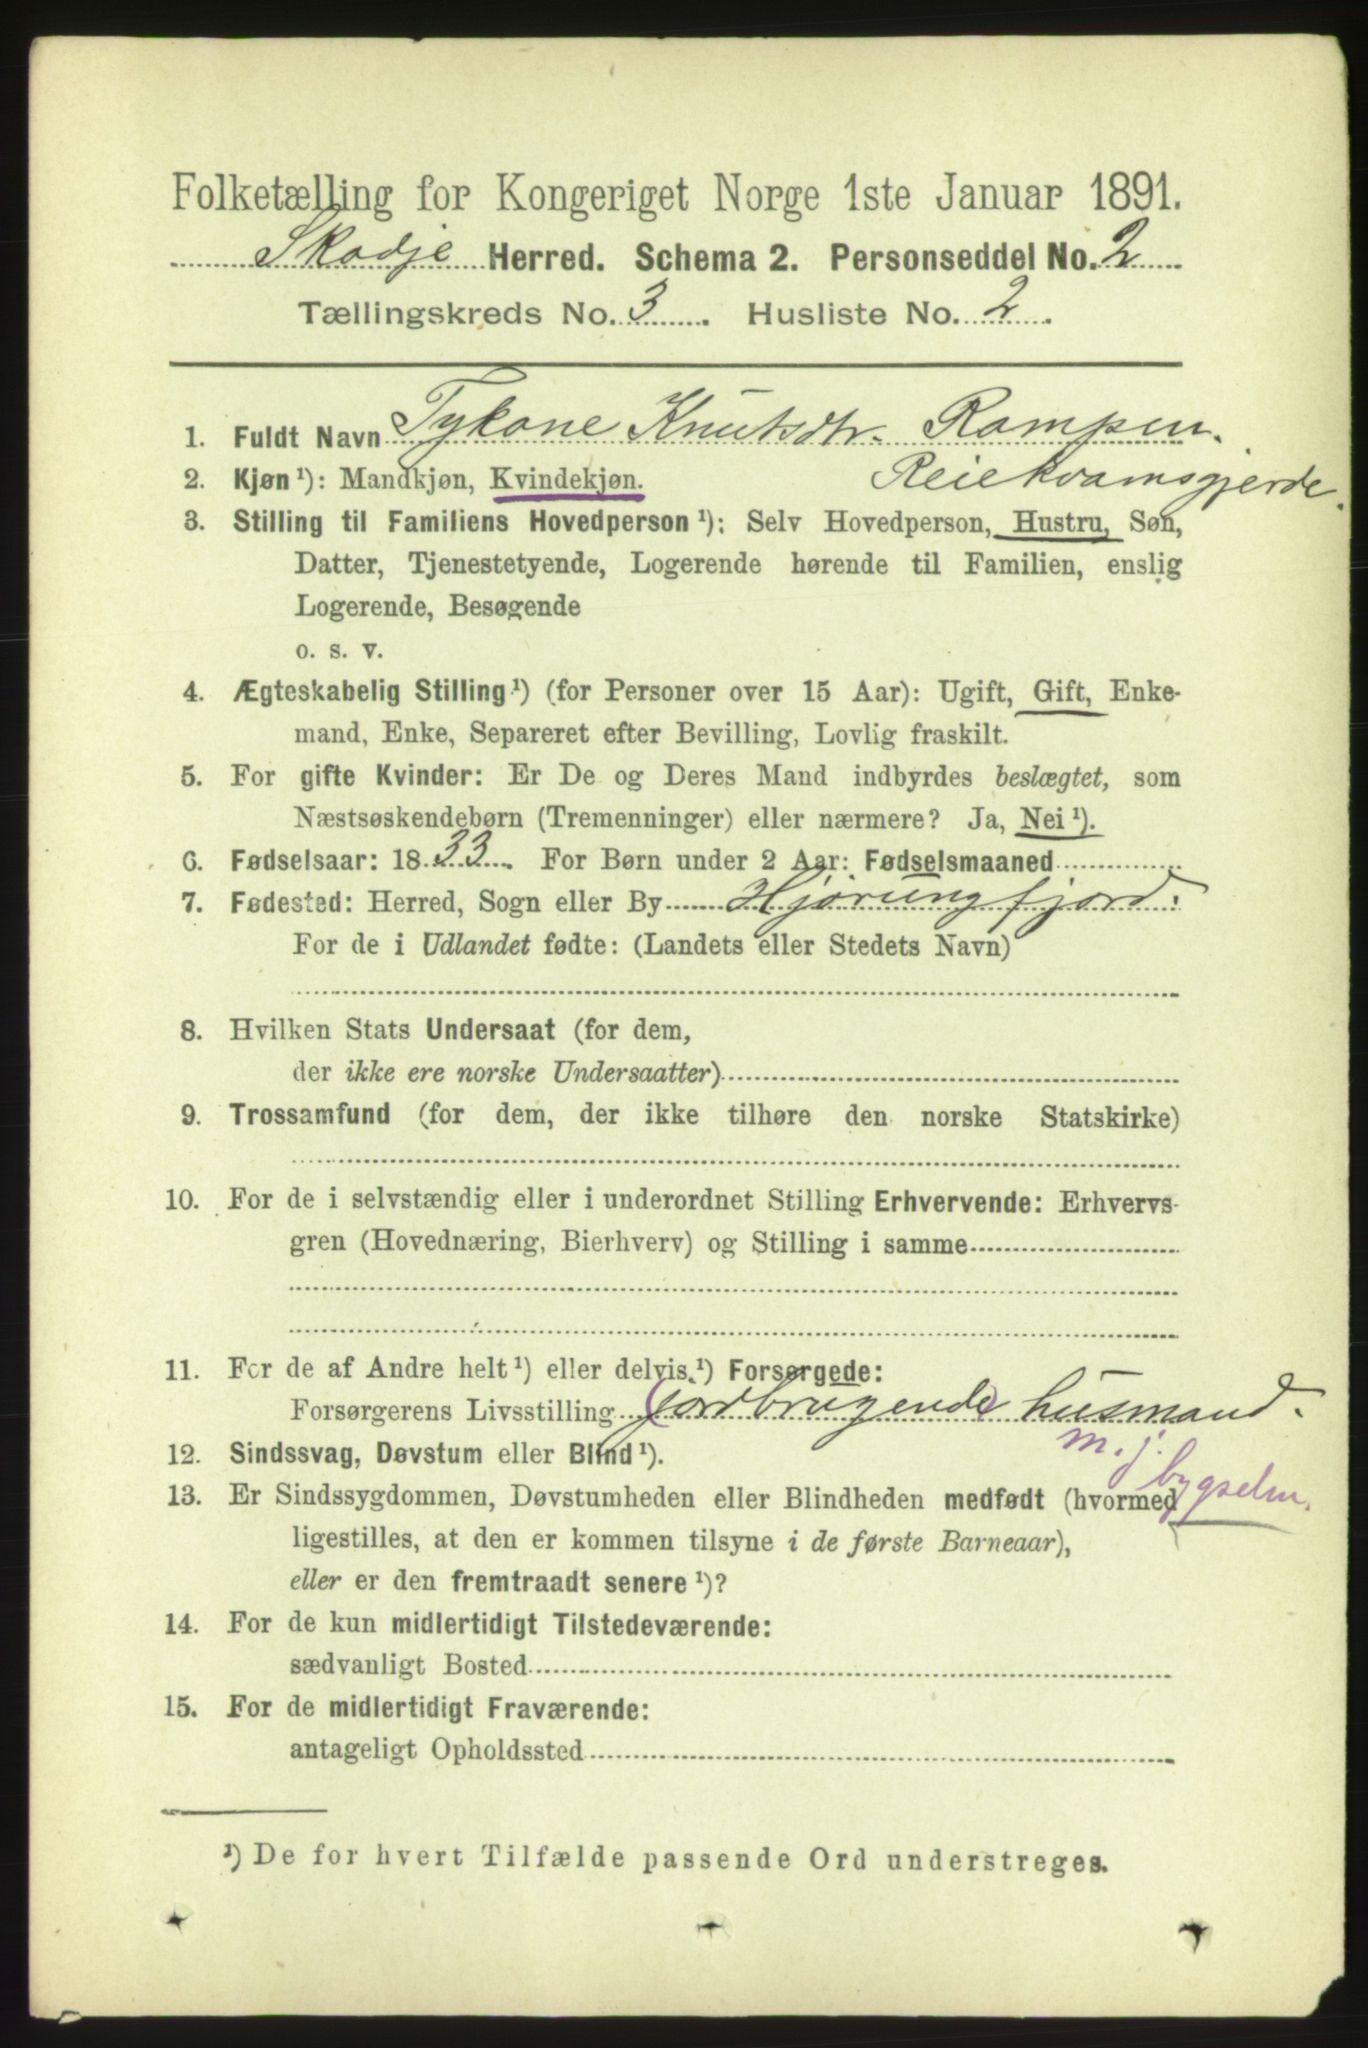 Folketælling for Kongeriget Norge 1ste Januar 1891.
Skodje Herred. Schema 2. Personseddel No. 2
Tællingskreds No. 3. Husliste No. 2.
1. Fuldt Navn Tykane Knutsdtr. Rampen.
Reiekvamsgjerde.
2. Kjøn ¹): Mandkjøn, Kvindekjøn.
3. Stilling til Familiens Hovedperson ¹): Selv Hovedperson, Hustru, Søn,
Datter, Tjenestetyende, Logerende hørende til Familien, enslig
Logerende, Besøgende
o. s. v.
4. Ægteskabelig Stilling ¹) (for Personer over 15 Aar): Ugift, Gift, Enke-
mand, Enke, Separeret efter Bevilling, Lovlig fraskilt.
5. For gifte Kvinder: Er De og Deres Mand indbyrdes beslægtet, som
Næstsøskendebørn (Tremenninger) eller nærmere? Ja, Nei ¹).
6. Fødselsaar: 1833. For Børn under 2 Aar: Fødselsmaaned
7. Fødested: Herred, Sogn eller By Hjørungfjord.
For de i Udlandet fødte: (Landets eller Stedets Navn)
8. Hvilken Stats Undersaat (for dem,
der ikke ere norske Undersaatter)
9. Trossamfund (for dem, der ikke tilhøre den norske Statskirke)
10. For de i selvstændig eller i underordnet Stilling Erhvervende: Erhvervs-
gren (Hovednæring, Bierhverv) og Stilling i samme
11. For de af Andre helt ¹) eller delvis ¹) Forsørgede:
Forsørgerens Livsstilling (jordbrugende) husmand.
m. j.
12. Sindssvag, Døvstum eller Blind ¹).
bygselm.
13. Er Sindssygdommen, Døvstumheden eller Blindheden medfødt (hvormed
ligestilles, at den er kommen tilsyne i de første Barneaar),
eller er den fremtraadt senere ¹)?
14. For de kun midlertidigt Tilstedeværende:
sædvanligt Bosted
15. For de midlertidigt Fraværende:
antageligt Opholdssted
¹) De for hvert Tilfælde passende Ord understreges.